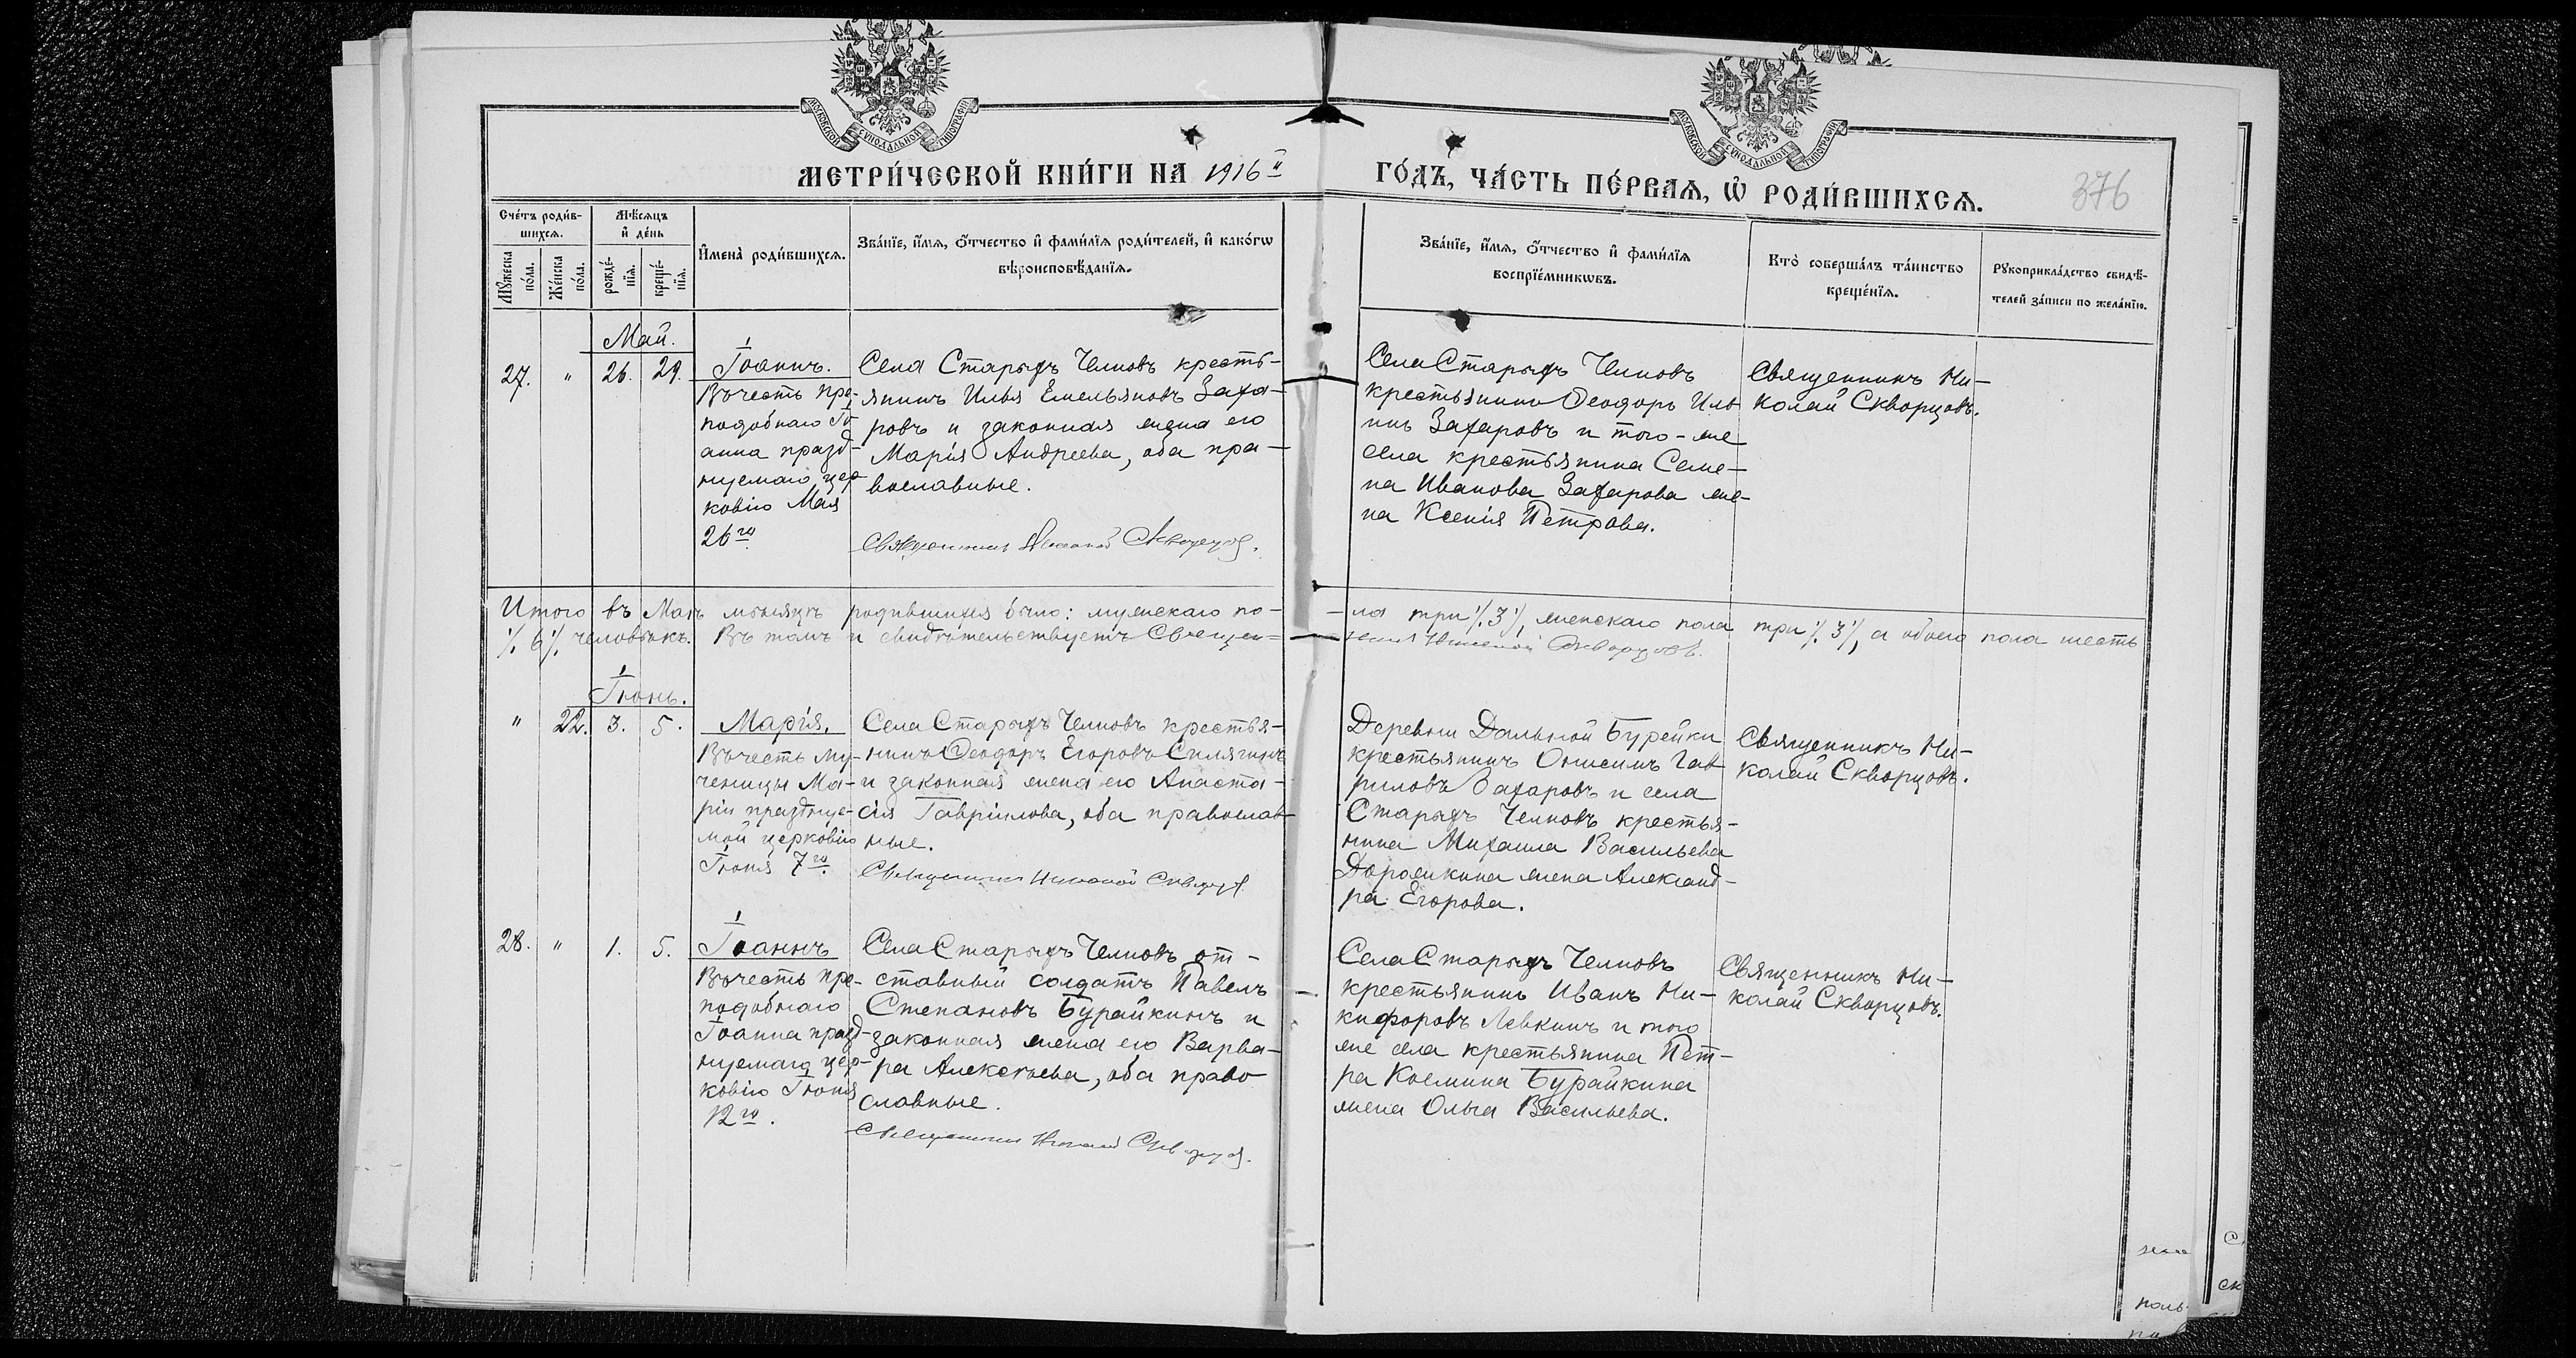 МОСКОВСКОЙ СѴНОДАЛЬНОЙ ТИПОГРАФІИ
МОСКОВСКОЙ СѴНОДАЛЬНОЙ ТИПОГРАФІИ
МЕТРИ́ЧЕСКОЙ КНИ́ГИ НА 1916й
ГО́ДЪ, ЧА́СТЬ ПЕ́РВАѦ, Ѽ РОДИ́ВШИХСѦ.
376
Сче́тъ роди́в-
шихсѧ.
Мꙋ́жеска
по́ла.
Же́нска
по́ла.
Мѣ́сѧцъ
и҆ де́нь
рожде́-
нїѧ.
креще́-
нїѧ.
И҆мена̀ роди́вшихсѧ.
Зва́нїе, и҆́мѧ, ѻ҆́тчество и҆ фами́лїѧ роди́телей, и҆ како́гѡ
вѣроисповѣ́данїѧ.
Зва́нїе, и҆́мѧ, ѻ҆́тчество и҆ фами́лїѧ
воспрїе́мникѡвъ.
Кто̀ соверша́лъ та́инство
креще́нїѧ.
Рꙋкоприкла́дство свидѣ́-
телей за́писи по жела́нїю.
Май.
27. " 26. 29.
Іоаннъ.
Въ честь пре-
подобнаго Іо-
анна празд-
нуемаго цер-
ковію Мая
26го
Села Старыхъ Челновъ кресть-
янинъ Илья Емельяновъ Заха-
ровъ и законная жена его
Марія Андреева, оба пра-
вославные.
Священникъ Николай Скворцовъ.
Села Старыхъ Челновъ
крестьянинъ Ѳеодоръ Иль-
инъ Захаровъ и того-же
села крестьянина Семе-
на Иванова Захарова же-
на Ксенія Петрова.
Священникъ Ни-
колай Скворцовъ.
Итого въ Маѣ мѣсяцѣ родившихся было: мужескаго по-
ла три ./.3./. женскаго пола три ./.3./., а обоего пола шесть
./.6./. человѣкъ. Въ томъ и свидѣтельствуетъ Священ-
никъ Николай Скворцовъ.
Іюнь.
" 22. 3. 5.
Марія.
Въ честь му-
ченицы Ма-
ріи празднуе-
мой церковію
Іюня 7го.
Села Старыхъ Челновъ крестья-
нинъ Ѳеодоръ Егоровъ Силягинъ
и законная жена его Анаста-
сія Гавріилова, оба православ-
ные.
Священникъ Николай Скворцовъ
Деревни Дальной Бурейки
крестьянинъ Онисимъ Гав-
риловъ Захаровъ и села
Старыхъ Челновъ крестья-
нина Михаила Васильева
Дорожкина жена Александ-
ра Егорова.
Священникъ Ни-
колай Скворцовъ.
28. " 1. 5.
Іоаннъ
Въ честь пре-
подобнаго
Іоанна празд-
нуемаго цер-
ковію Іюня
12го.
Села Старыхъ Челновъ от-
ставный солдатъ Павелъ
Степановъ Бурайкинъ и
законная жена его Варва-
ра Алексѣева, оба право-
славные.
Священникъ Николай Скворцовъ.
Села Старыхъ Челновъ
крестьянинъ Иванъ Ни-
кифоровъ Левкинъ и того
же села крестьянина Пет-
ра Космина Бурайкина
жена Ольга Васильева.
Священникъ Ни-
колай Скворцовъ.